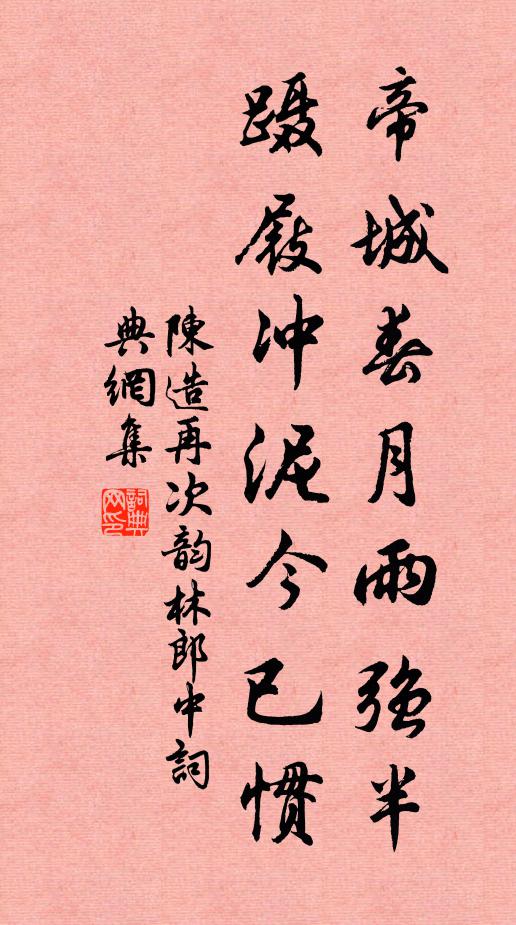 帝城春月雨強半
蹑屐冲泥今已慣
陳造再次韵林郎中詞
典網集
詞典網印